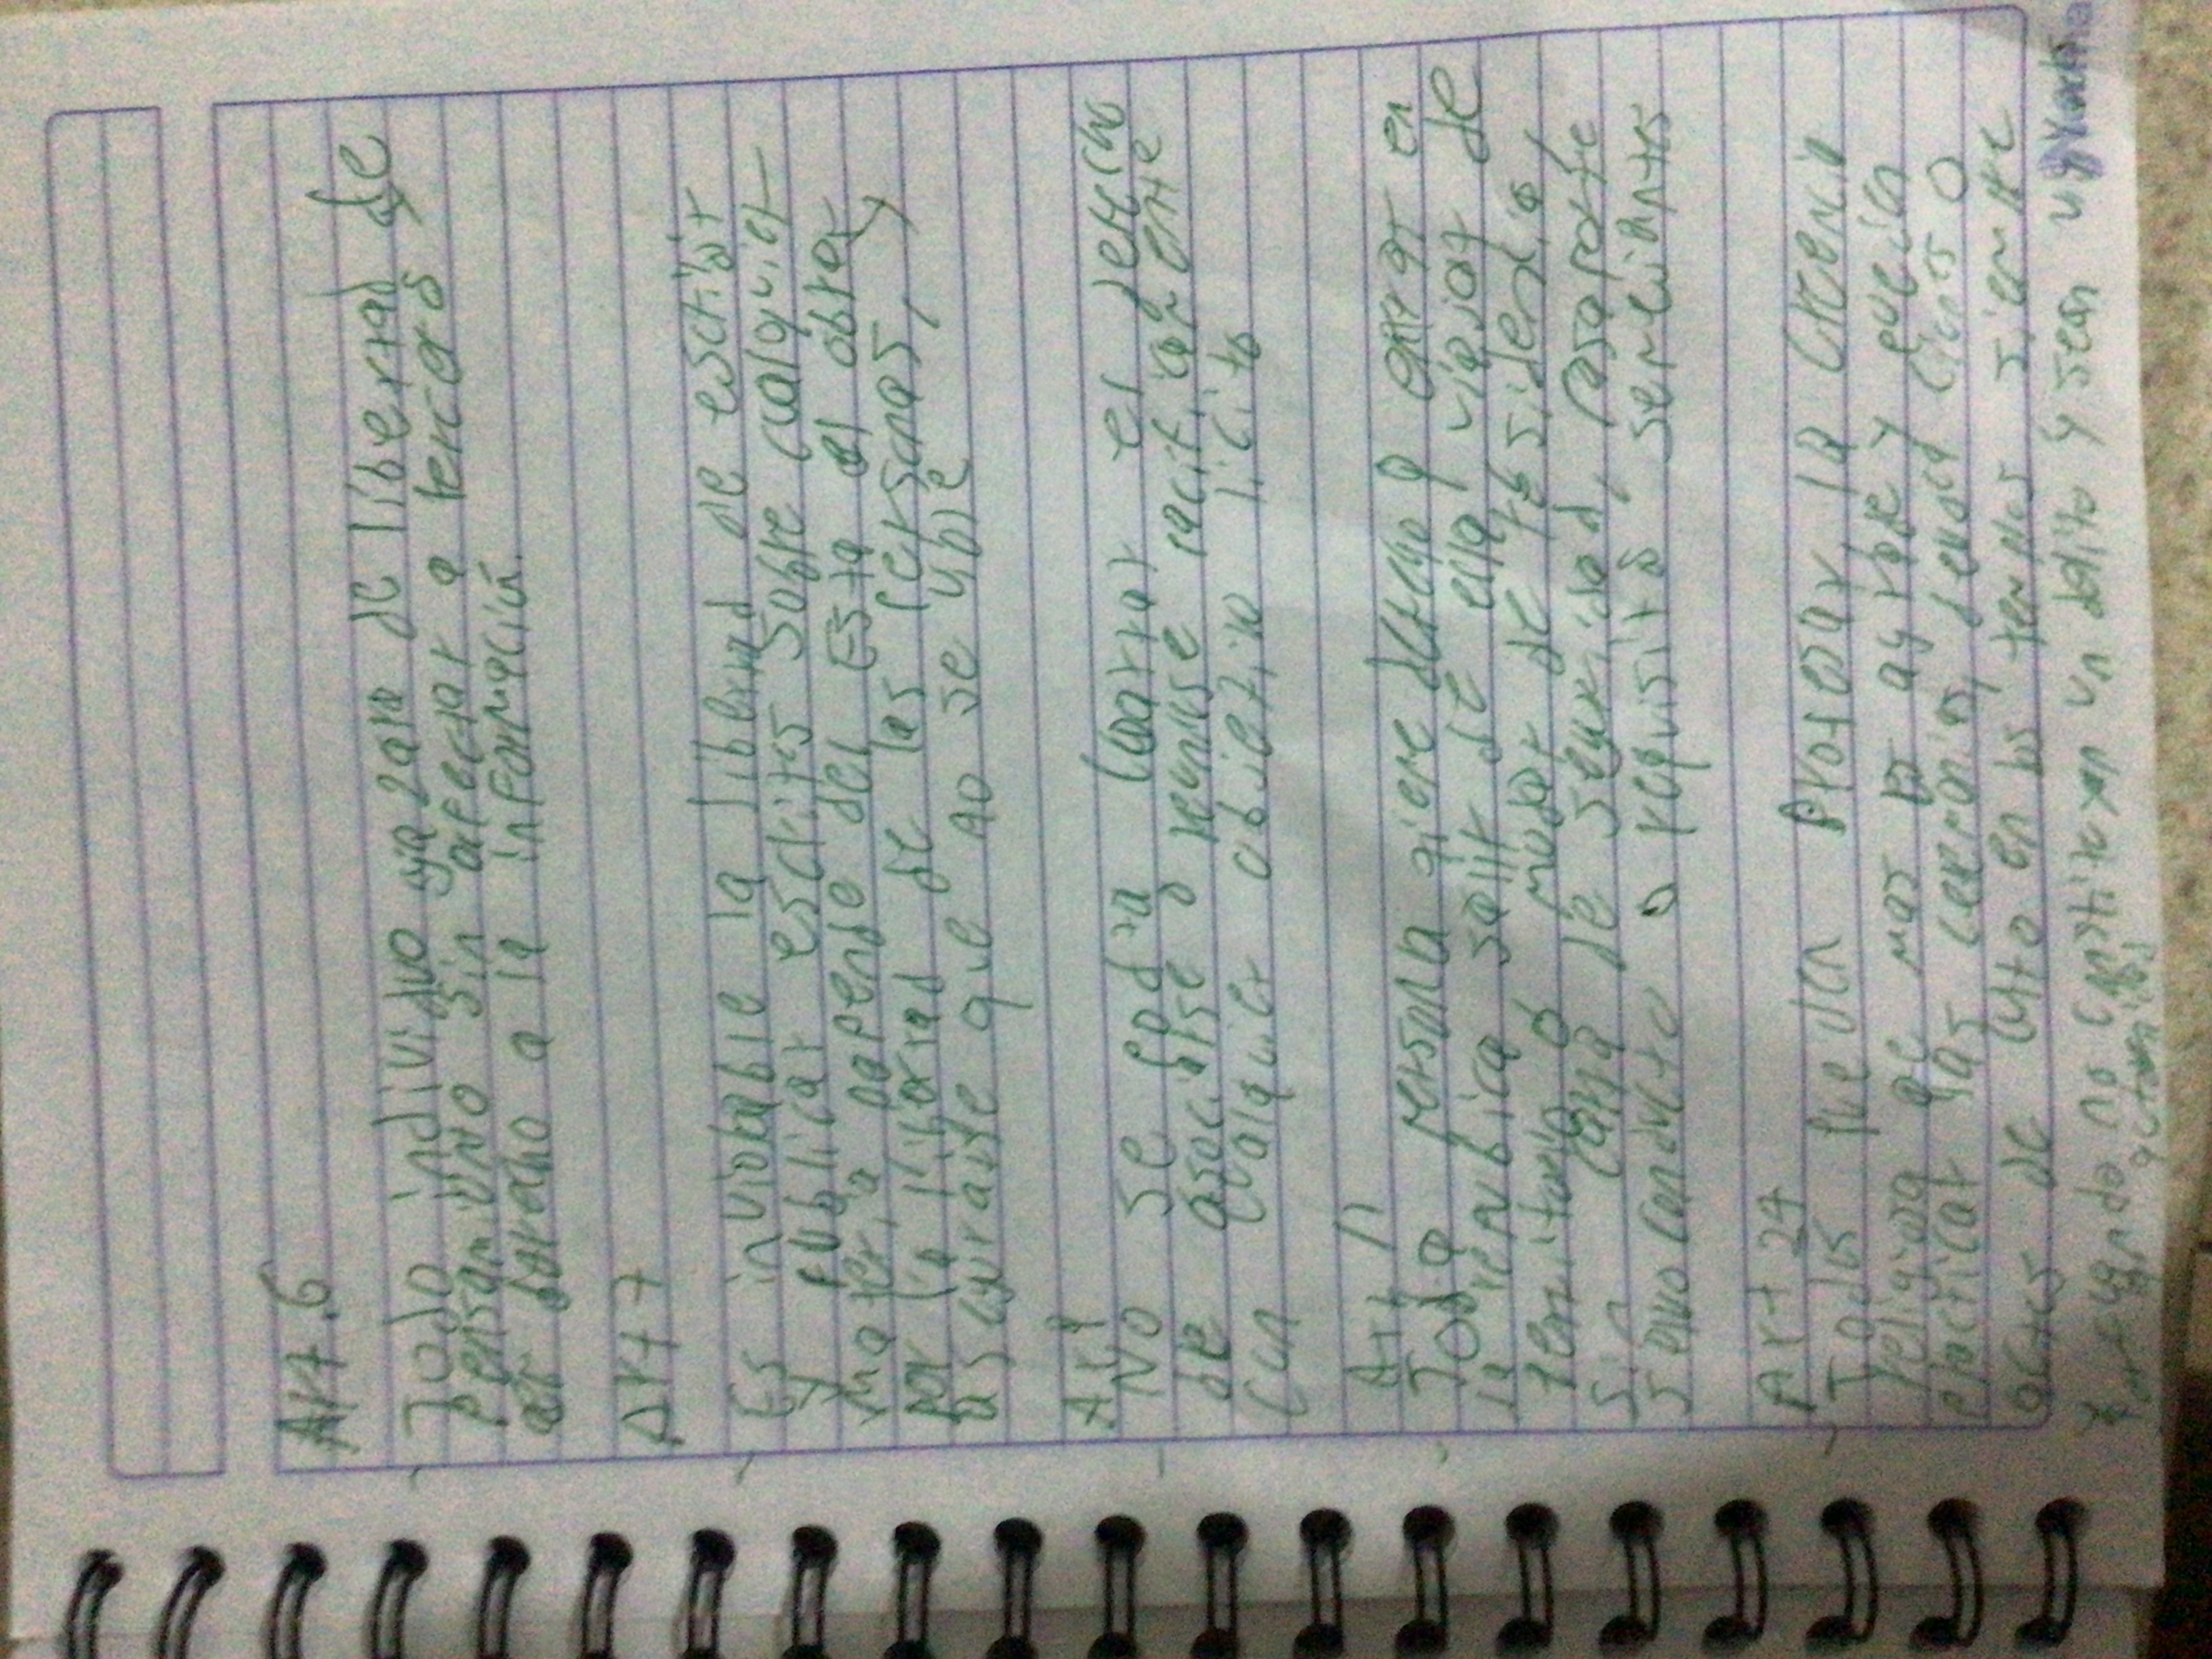 Art.6
Todo individuo gozara de libertad de
pensamiento sin afectar a terceros
del derecho a la información.
Art 7
Es inviolable la libertad de escribir
y publicar escritos sobre cualquier
materia depende del Esta el obrar
por la libertad de las personas, y
asegurarse que no se viole
Art 9
No se podra coartar el derecho
de asociarse o reunirse pacificamente
con cualquier objetivo licito
Art 11
Toda persona tiene derecho a entrar en
la republica salir de ella viajar de
territorio o mudar de residencia
sin carta de seguridad, pasaporte
salvo conducto o requisitos semejantes
Art 24
Todos pueden profesar la creencia
religiosa que mas le agrade y pueden
practicar las ceremonias, devociones o
actos de culto en los templos siempre
y cuando no constituyan un delito y sean